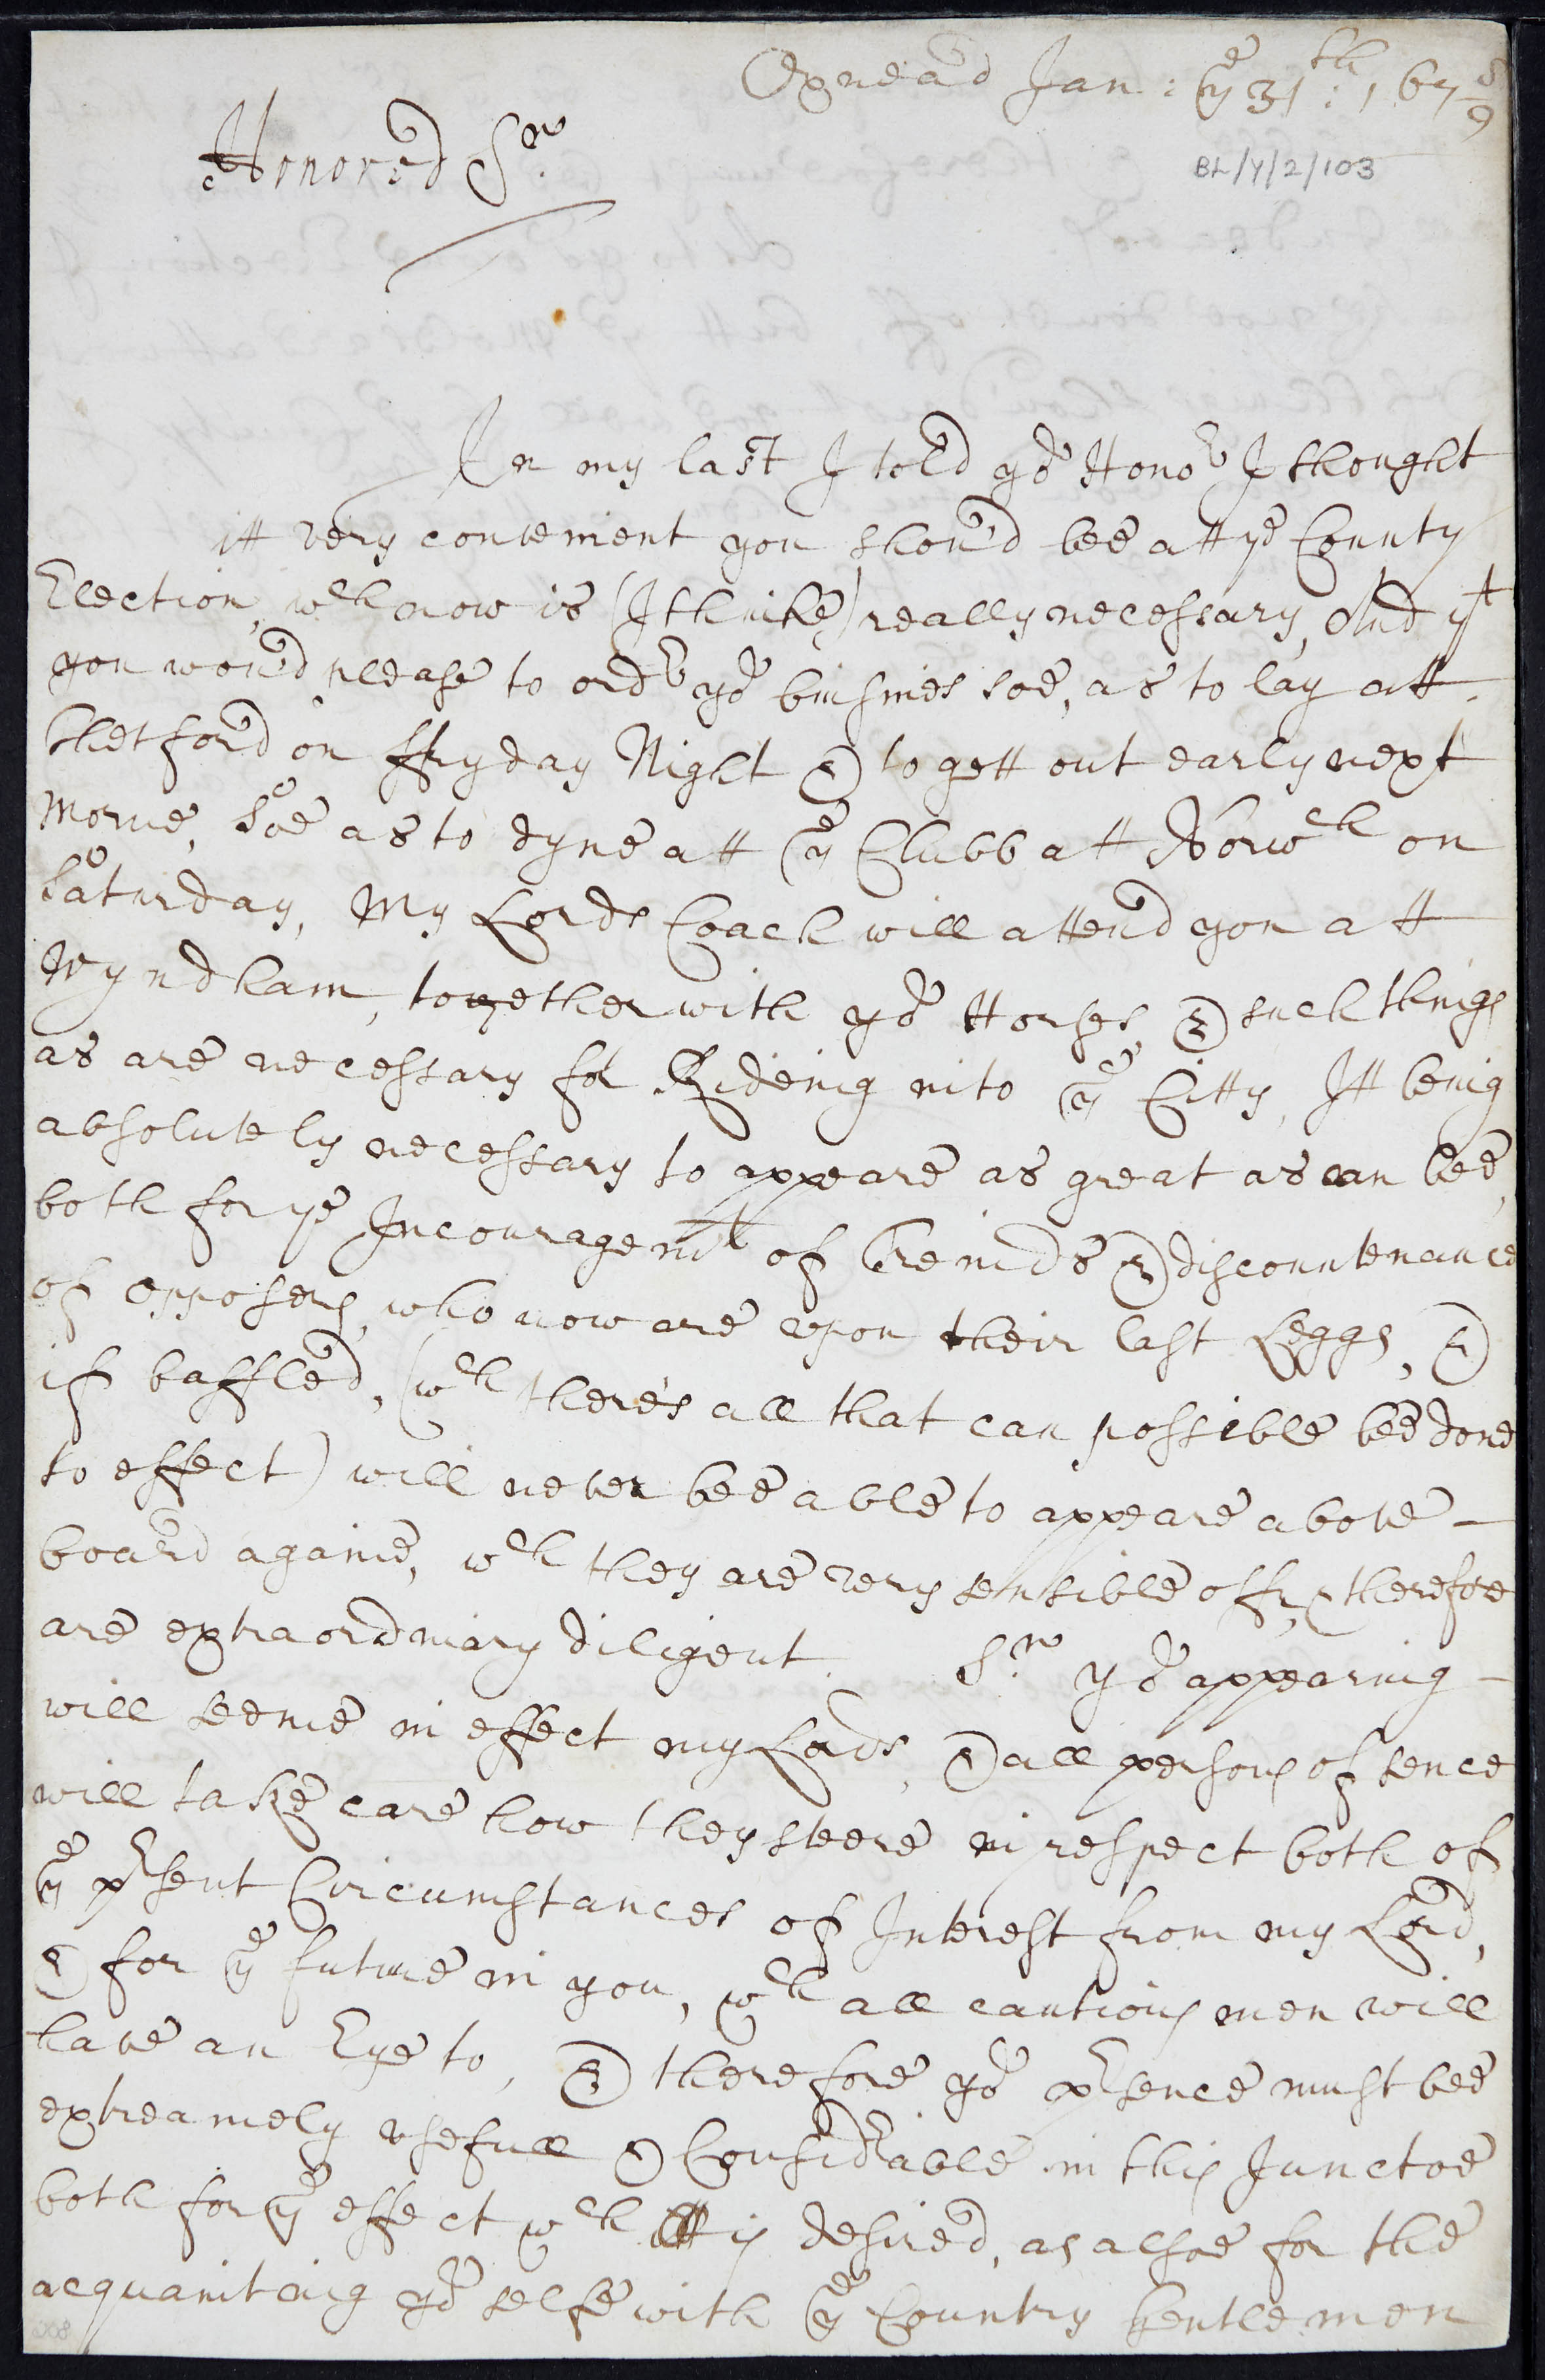 Oxnead Jan: ye 31th: 167 8/9
BL/Y/2/103
Honored Sr.
In my last I told yor Honor I thought
itt very convenient you shou'd bee att ye County
Election, wch now is (I thinke) really necessary, And yt
you wou'd please to ordr yor buisines soe, as to lay att
Thetford on ffryday Night & to gett out early next
Morne, Soe as to dyne att ye Clubb att Norwch on
Saturday, My Lords Coach will attend you att
Wyndham, together with yor Horses, & such things
as are necessary for Rideing into ye Citty, Itt being
absolutely necessary to appeare as great as can bee,
both for ye Incouragemt of Freinds & discountenance
of opposers, who now are upon their last Leggs, &
if baffled, (wch there's all that can possible bee done
to effect) will never bee able to appeare above –
board againe, wch they are very sensible off, & therefore
are extraordinary diligent. Sr. yor appearing –
will seeme in effect my Lords, & all persons of sence
will take care how they steere in respect both of
ye prsent Circumstances of Interest from my Lord,
& for ye future in you, wch all cautious men will
have an Eye to, & therefore yor prsence must bee
extreamely usefull & Considrable in this Junctoe
both for ye effect wch itt is desired, as alsoe for the
acquainteing yor selfe with ye Country Gentlemen